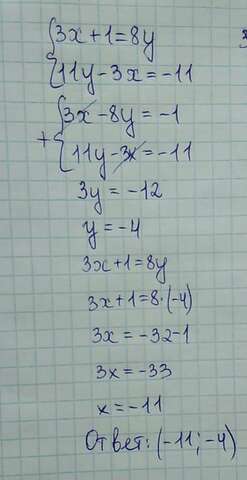 3x+1=8y
11y-3x=-11
3x-8y=-1
+
11y-3x=-11
3y=-12
y=-4
3x+1=8y
3x+1=8·(-4)
3x=-32-1
3x=-33
x=-11
Ответ: (-11; -4)